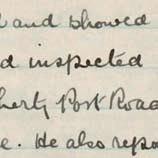 and showed
inspected
Port Road
He also repo